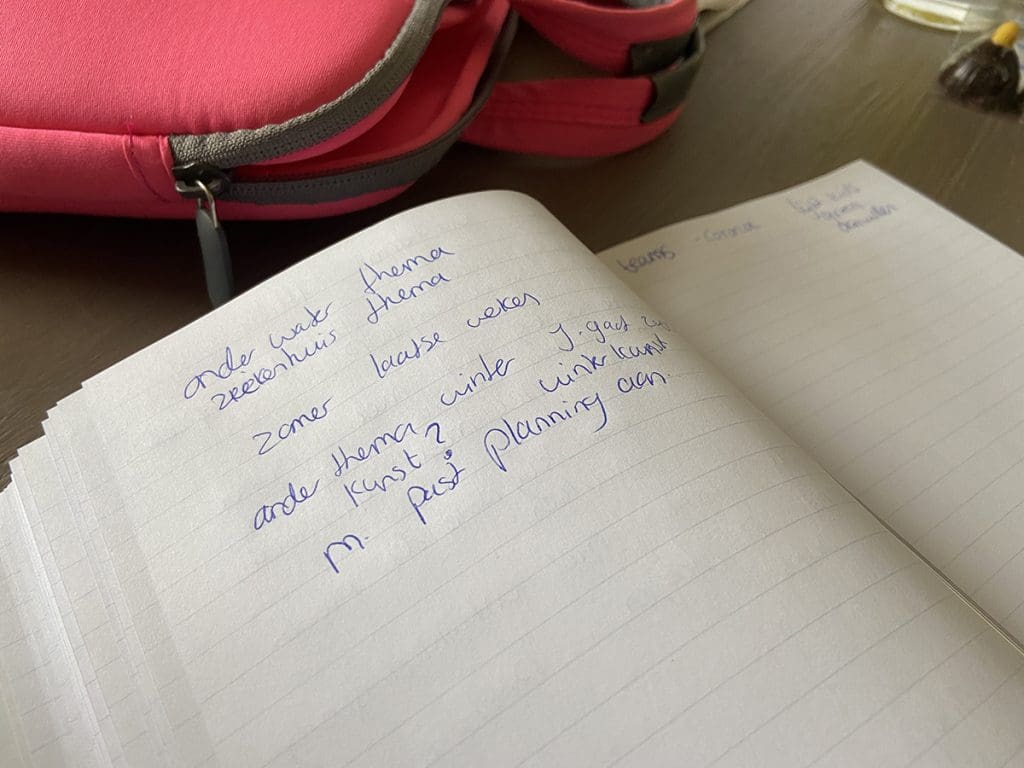 onder water thema
ziekenhuis thema
zomer laatse weken
ander thema winter J. gaat
kunst? winterkunst
M. past planning aan.
teams - corona